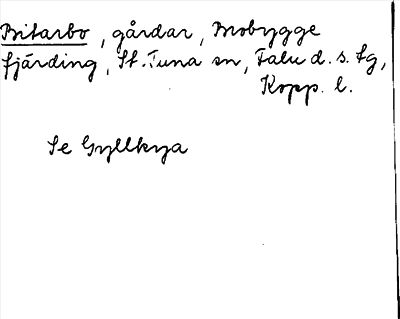 Bitarbo, gårdar, Mobygge
fjärding, St. Tuna sn, Falu d. s. tg,
Kopp. l.
Se Gyllkya